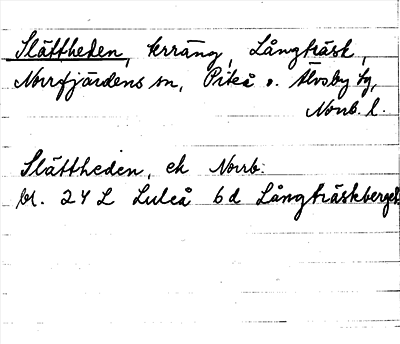 Slättheden, krräng, Långträsk,
Norrfjärdens sn, Piteå o. Älvsby tg,
Norrb. l.
Slättheden, ek Norrb.
bl. 24 L Luleå 6d Långträskberget